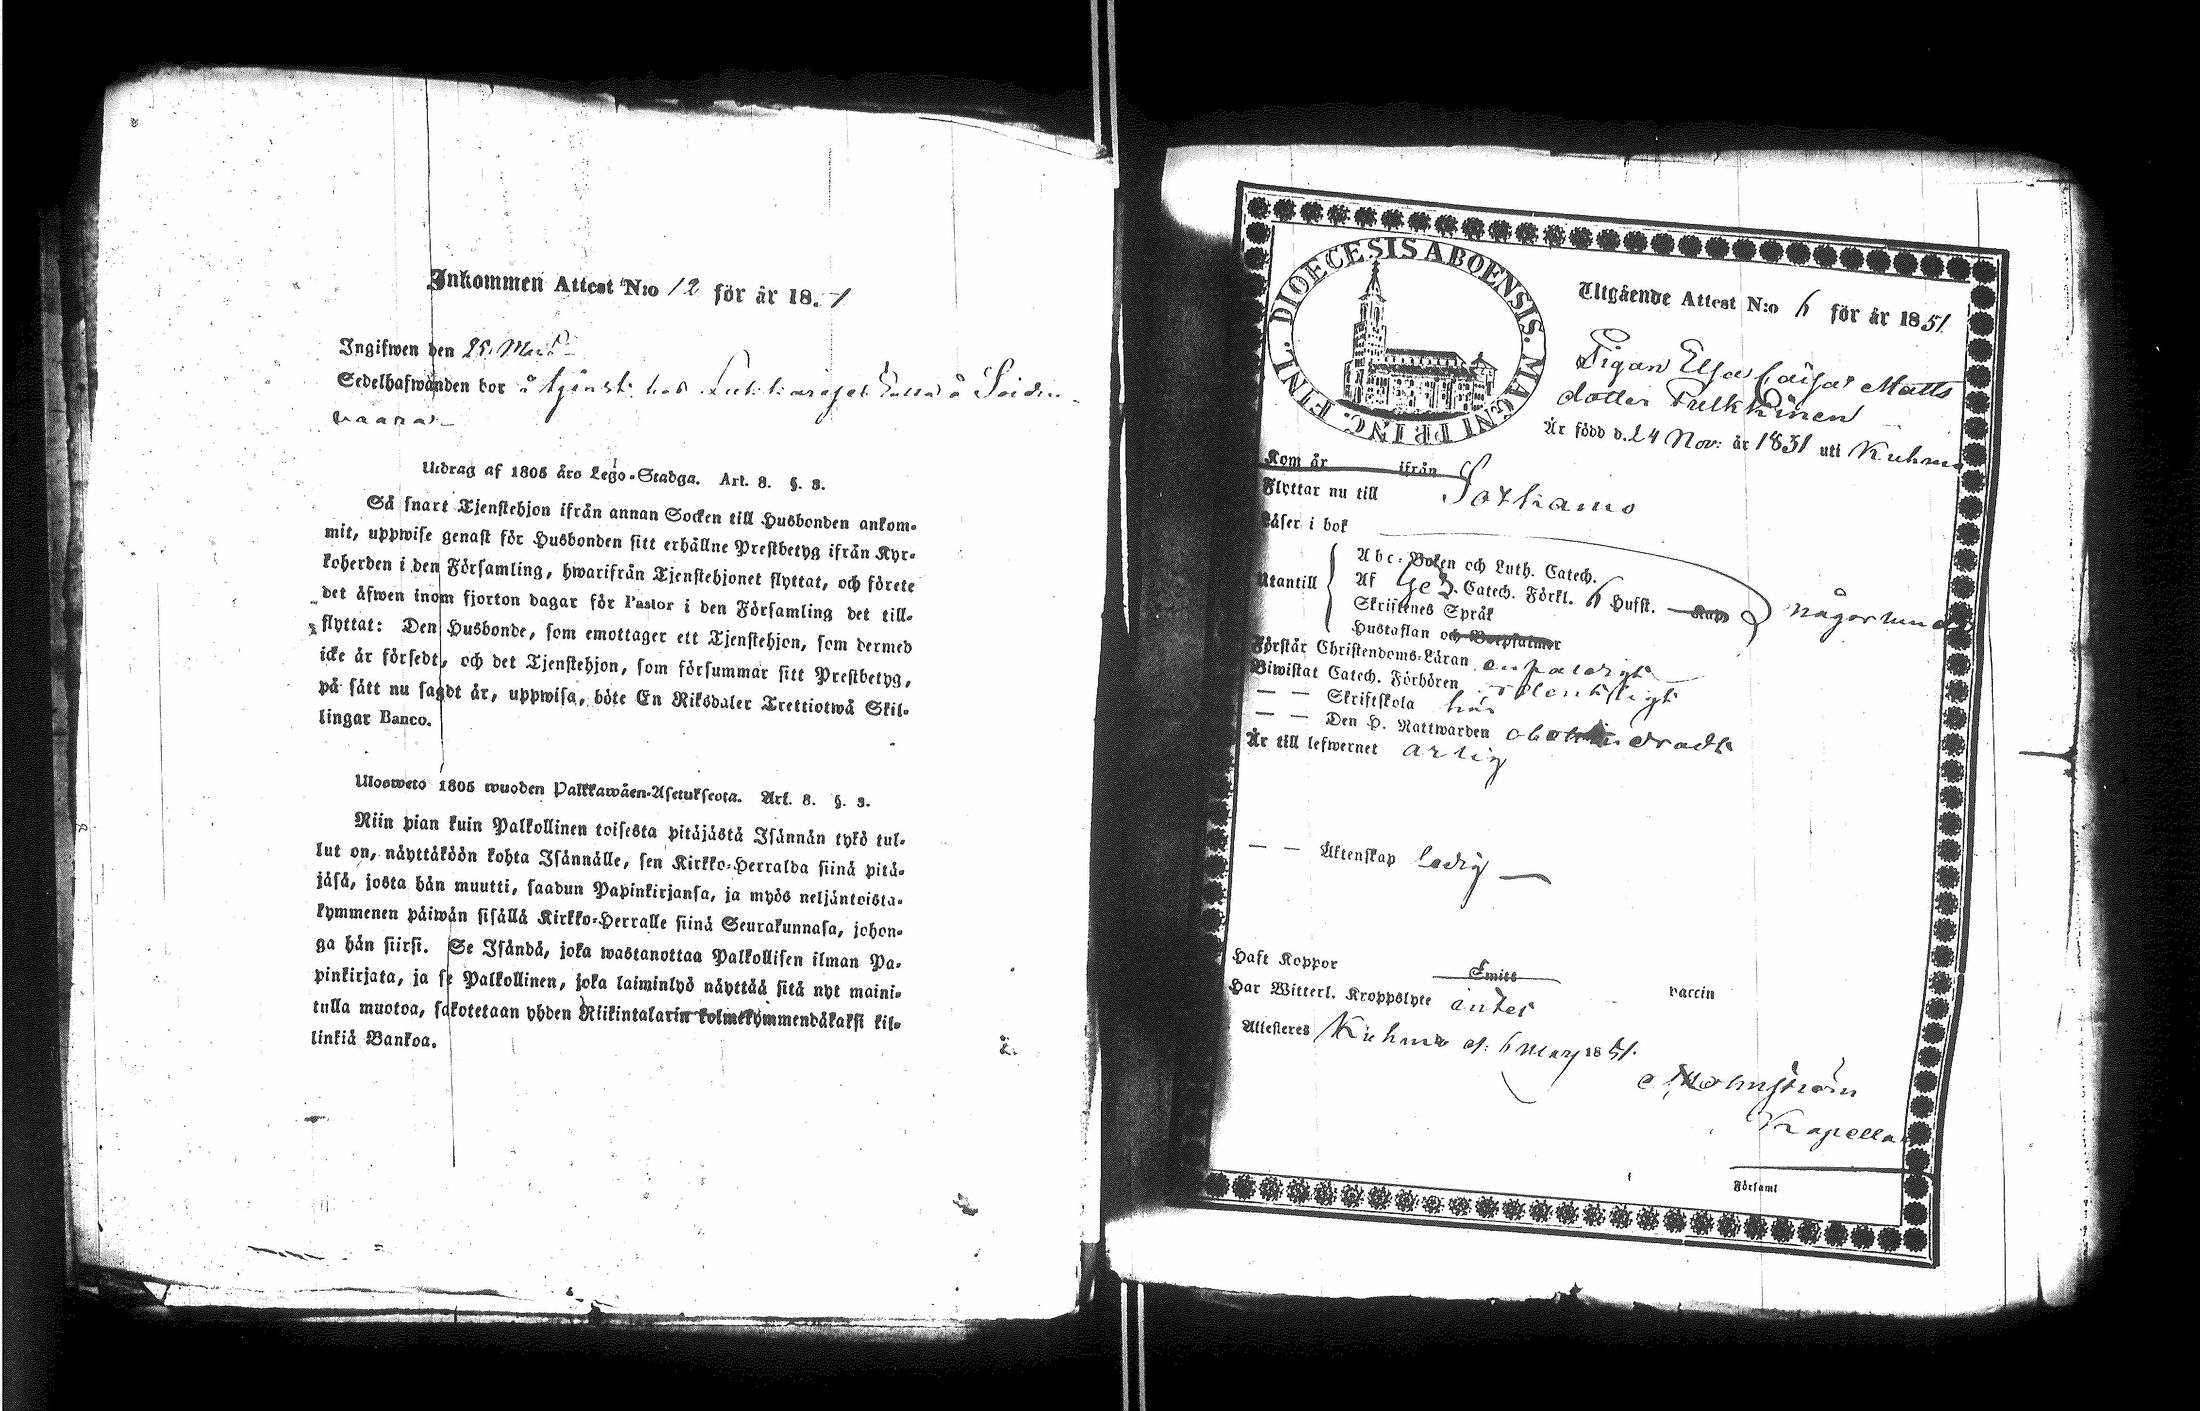 Inkommen Attest N:o 12 för år 18.
Ingifwen den 25
Sedelhafwanden bor i tjenst hos å
vaara
Utdrag af 1805 års Lego-Stadga. Art. 8. §. 3.
Så snart Tjenstehjon ifrån annan Socken till Husbonden ankom-
mit, uppwise genast för Husbonden sitt erhållne Prestbetyg ifrån Kyr-
koherden i den Församling, hwarifrån Tjenstehjonet flyttat, och förete
det äfwen inom fjorton dagar för Pastor i den Församling det till-
flyttat: Den Husbonde, som emottager ett Tjenstehjon, som dermed
icke är försedt, och det Tjenstehjon, som försummar sitt Prestbetyg,
på sätt nu sagdt är, uppwisa, böte En Riksdaler Trettiotwå Skil-
lingar Banco.
Ulosweto 1805 wuoden Palkkawäen-Asetuksesta. Art. 8. §. 3.
Niin pian kuin Palkollinen toisesta pitäjästä Isännän tykö tul-
lut on, näyttäköön kohta Isännälle, sen Kirkko-Herralda siinä pitä-
jäsä, josta hän muutti, saadun Papinkirjansa, ja myös neljäntoista-
kymmenen päiwän sisällä Kirkko-Herralle siinä Seurakunnasa, johon-
ga hän siirsi. Se Isändä, joka wastanottaa Palkollisen ilman Pa-
pinkirjata, ja se Palkollinen, joka laiminlyö näyttää sitä nyt maini-
tulla muotoa, sakotetaan yhden Riikintalarin kolmekymmendäkaksi kil-
linkiä Bankoa.
DIOECESIS ABOENSIS. MAGNI PRINC. FINL.
Utgående Attest N:o 6 för år 1851.
Pigan Elsa Caisa Matts
dotter Pulkkinen
Är född d. 24 Nov: år 1831 uti Kuhmo
Kom år ifrån
Flyttar nu till Sotkamo
Läser i bok
Utantill
Abc-Boken och Luth. Catech.
Af Catech. Förkl. 6 Hufst. Kap
Skriftenes Språk
Hustaflan och Botpsalmer
någorlunda
Förstår Christendoms-Läran enfaldigt
Biwistat Catech. Förhören ordentligt
— — Skriftskola här
— — Den H. Nattwarden obehindradt
Är till lefwernet ärlig
— — Äktenskap ledig —
Haft Koppor Smitt vaccin
Har Witterl. Kroppslyte intet
Attesteras Kuhmo d. 6 May 1851.
Holmström
Kapellan
Församl